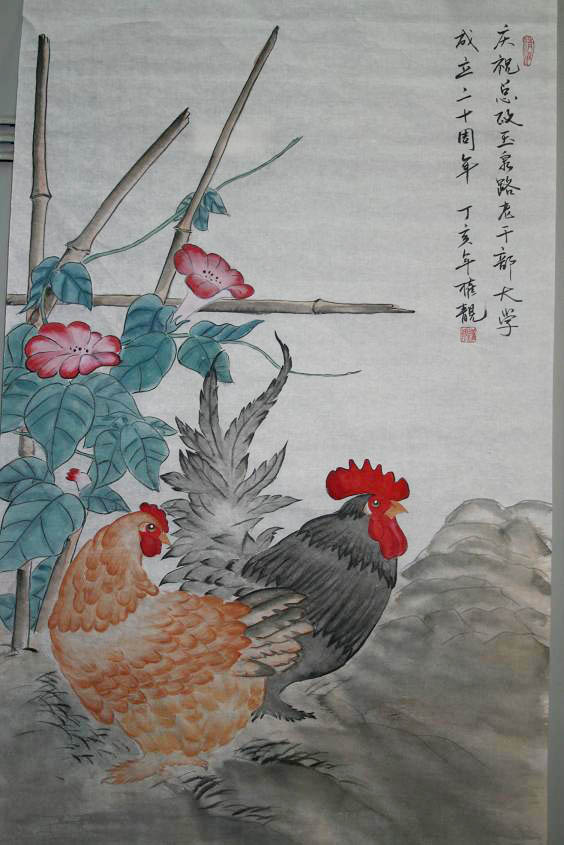 庆祝总政玉泉路老干部大学
成立二十周年 丁亥年